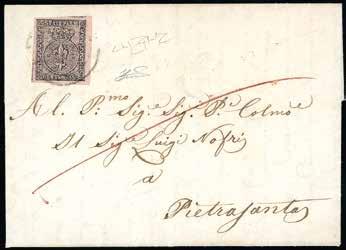 Al. P.mo Sig.e Sig. P.e Colmo
Il Sig.e Luigi Nofri
a
Pietrasanta